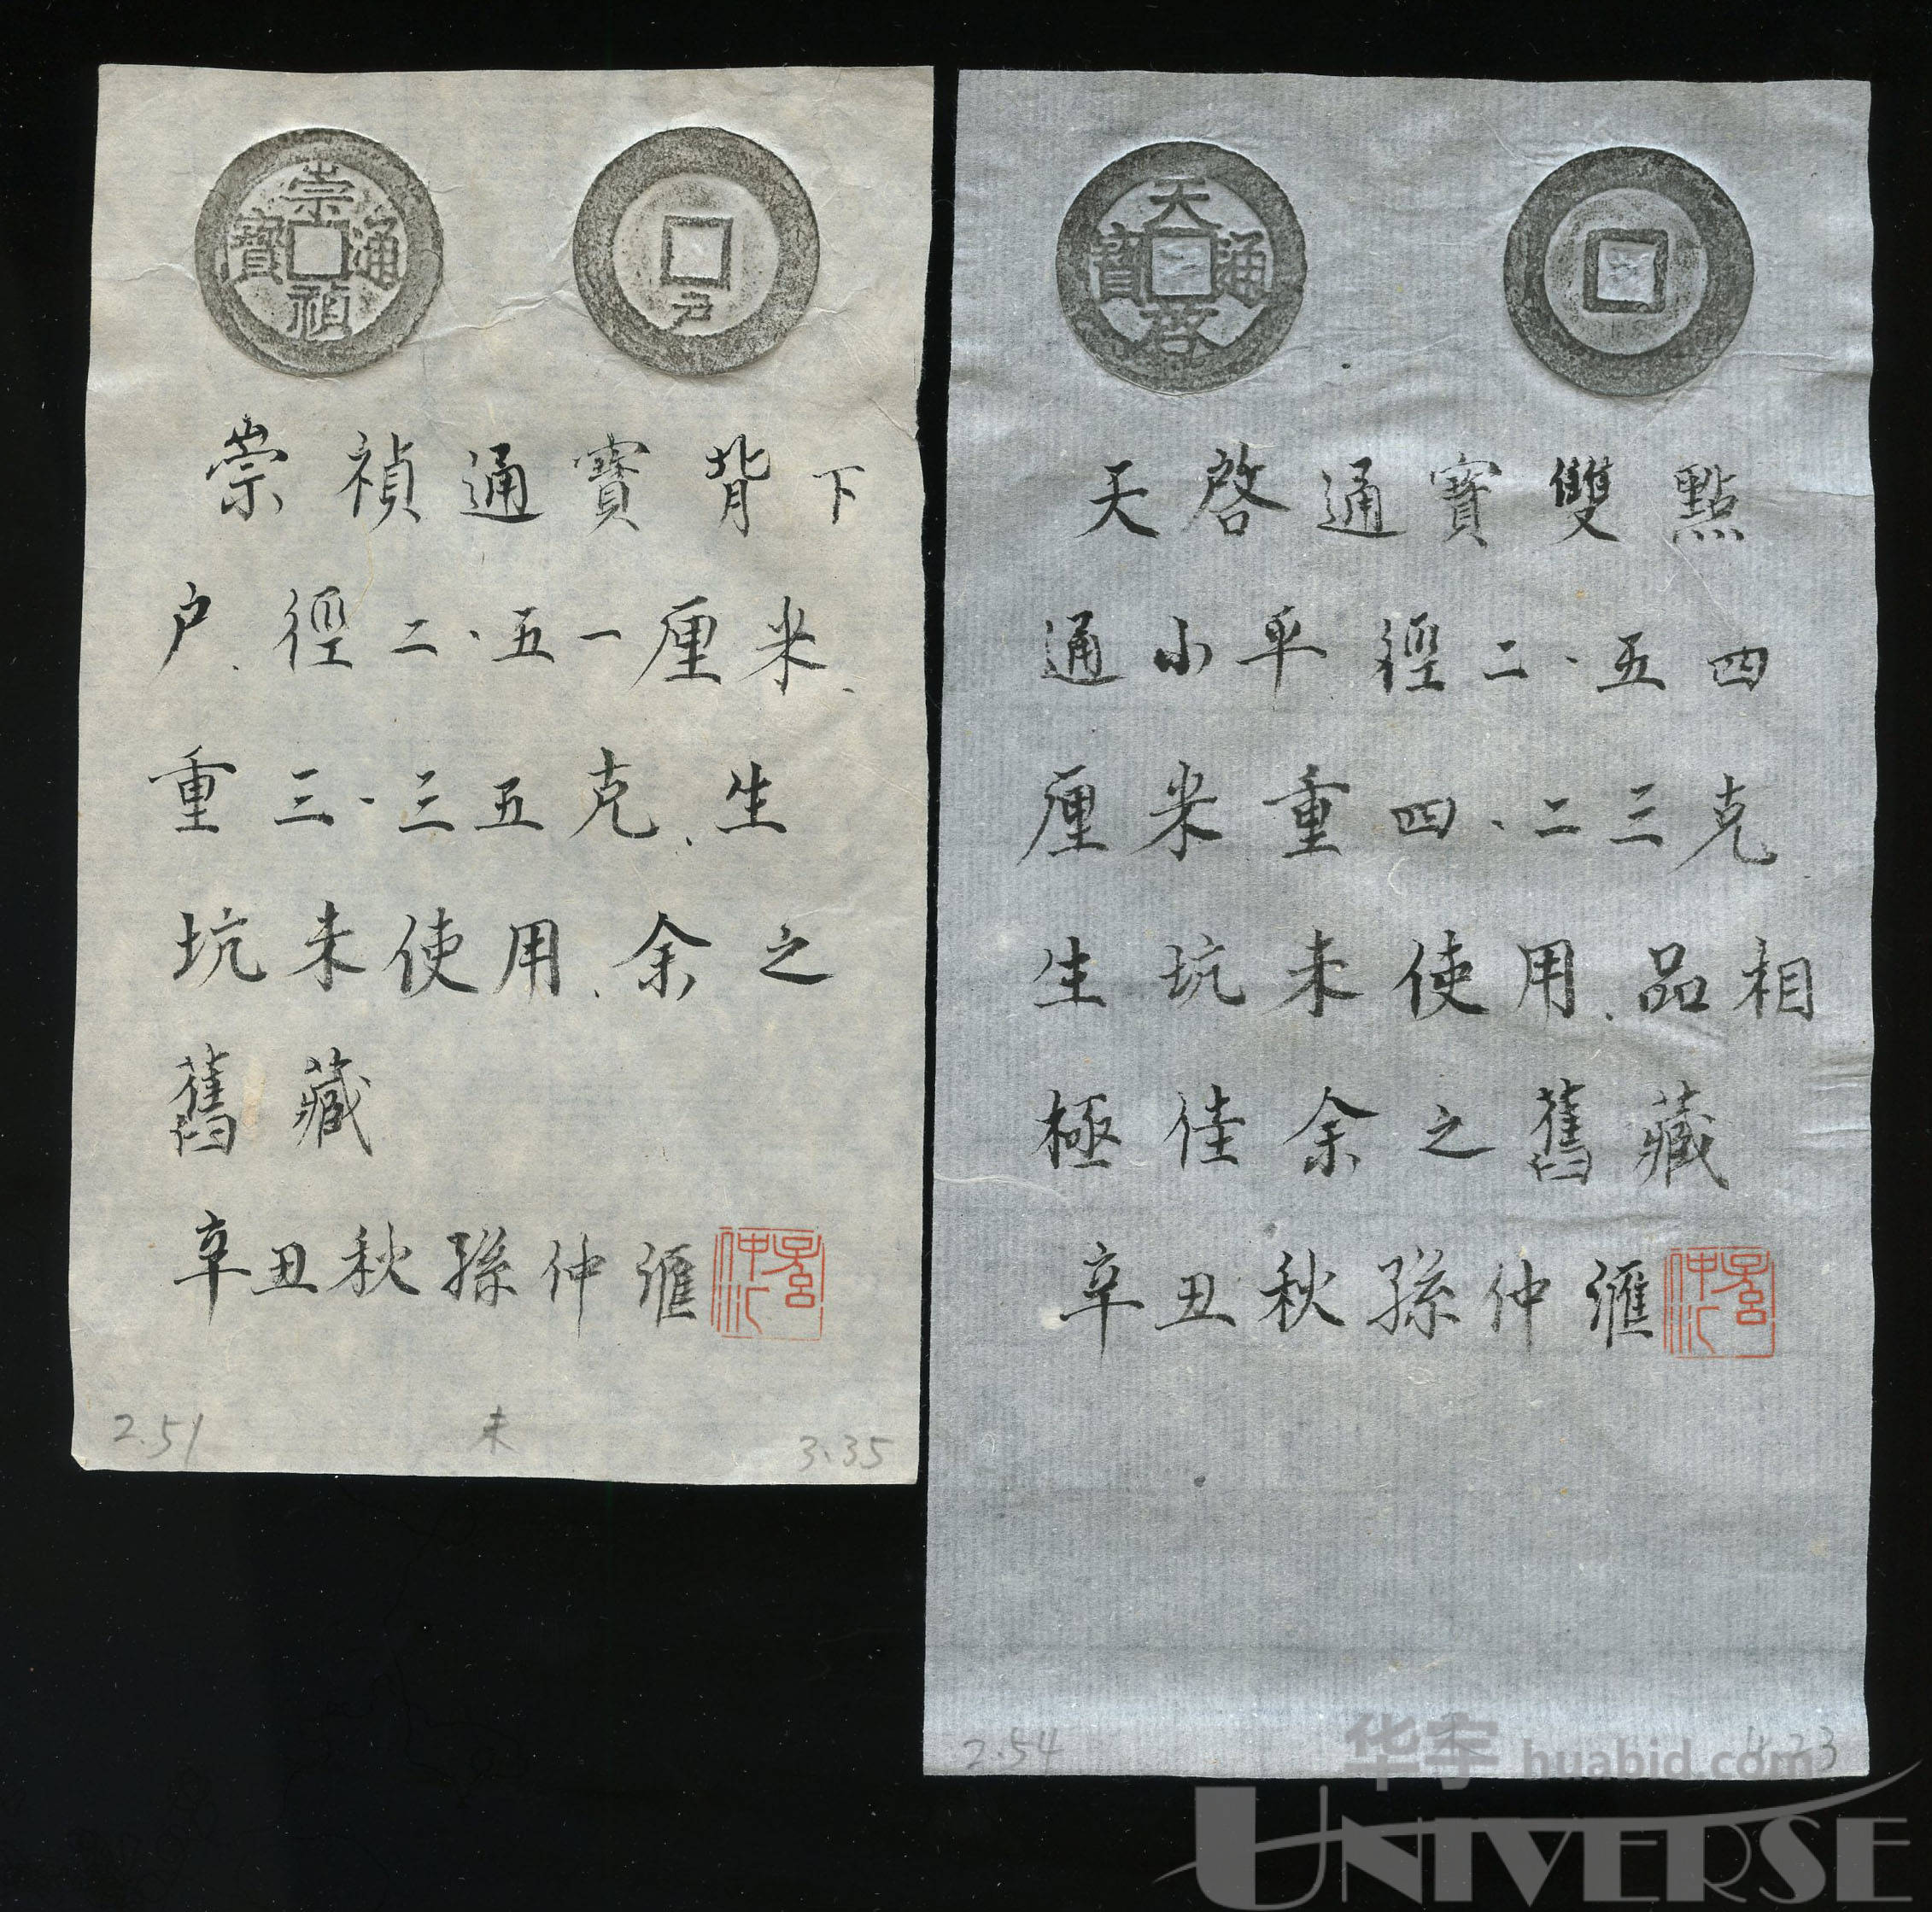 崇禎通寶
户
崇禎通寶背下
户、徑二·五一厘米、
重三·三五克、生
坑未使用、余之
舊藏
辛丑秋孫仲匯
孫仲匯
2.51 未 3.35
天啓通寶
天啓通寶雙點
通小平徑二·五四
厘米重四·二三克
生坑未使用、品相
極佳余之舊藏
辛丑秋孫仲匯
孫仲匯
2.54 4.23
华宇 huabid.com
UNIVERSE